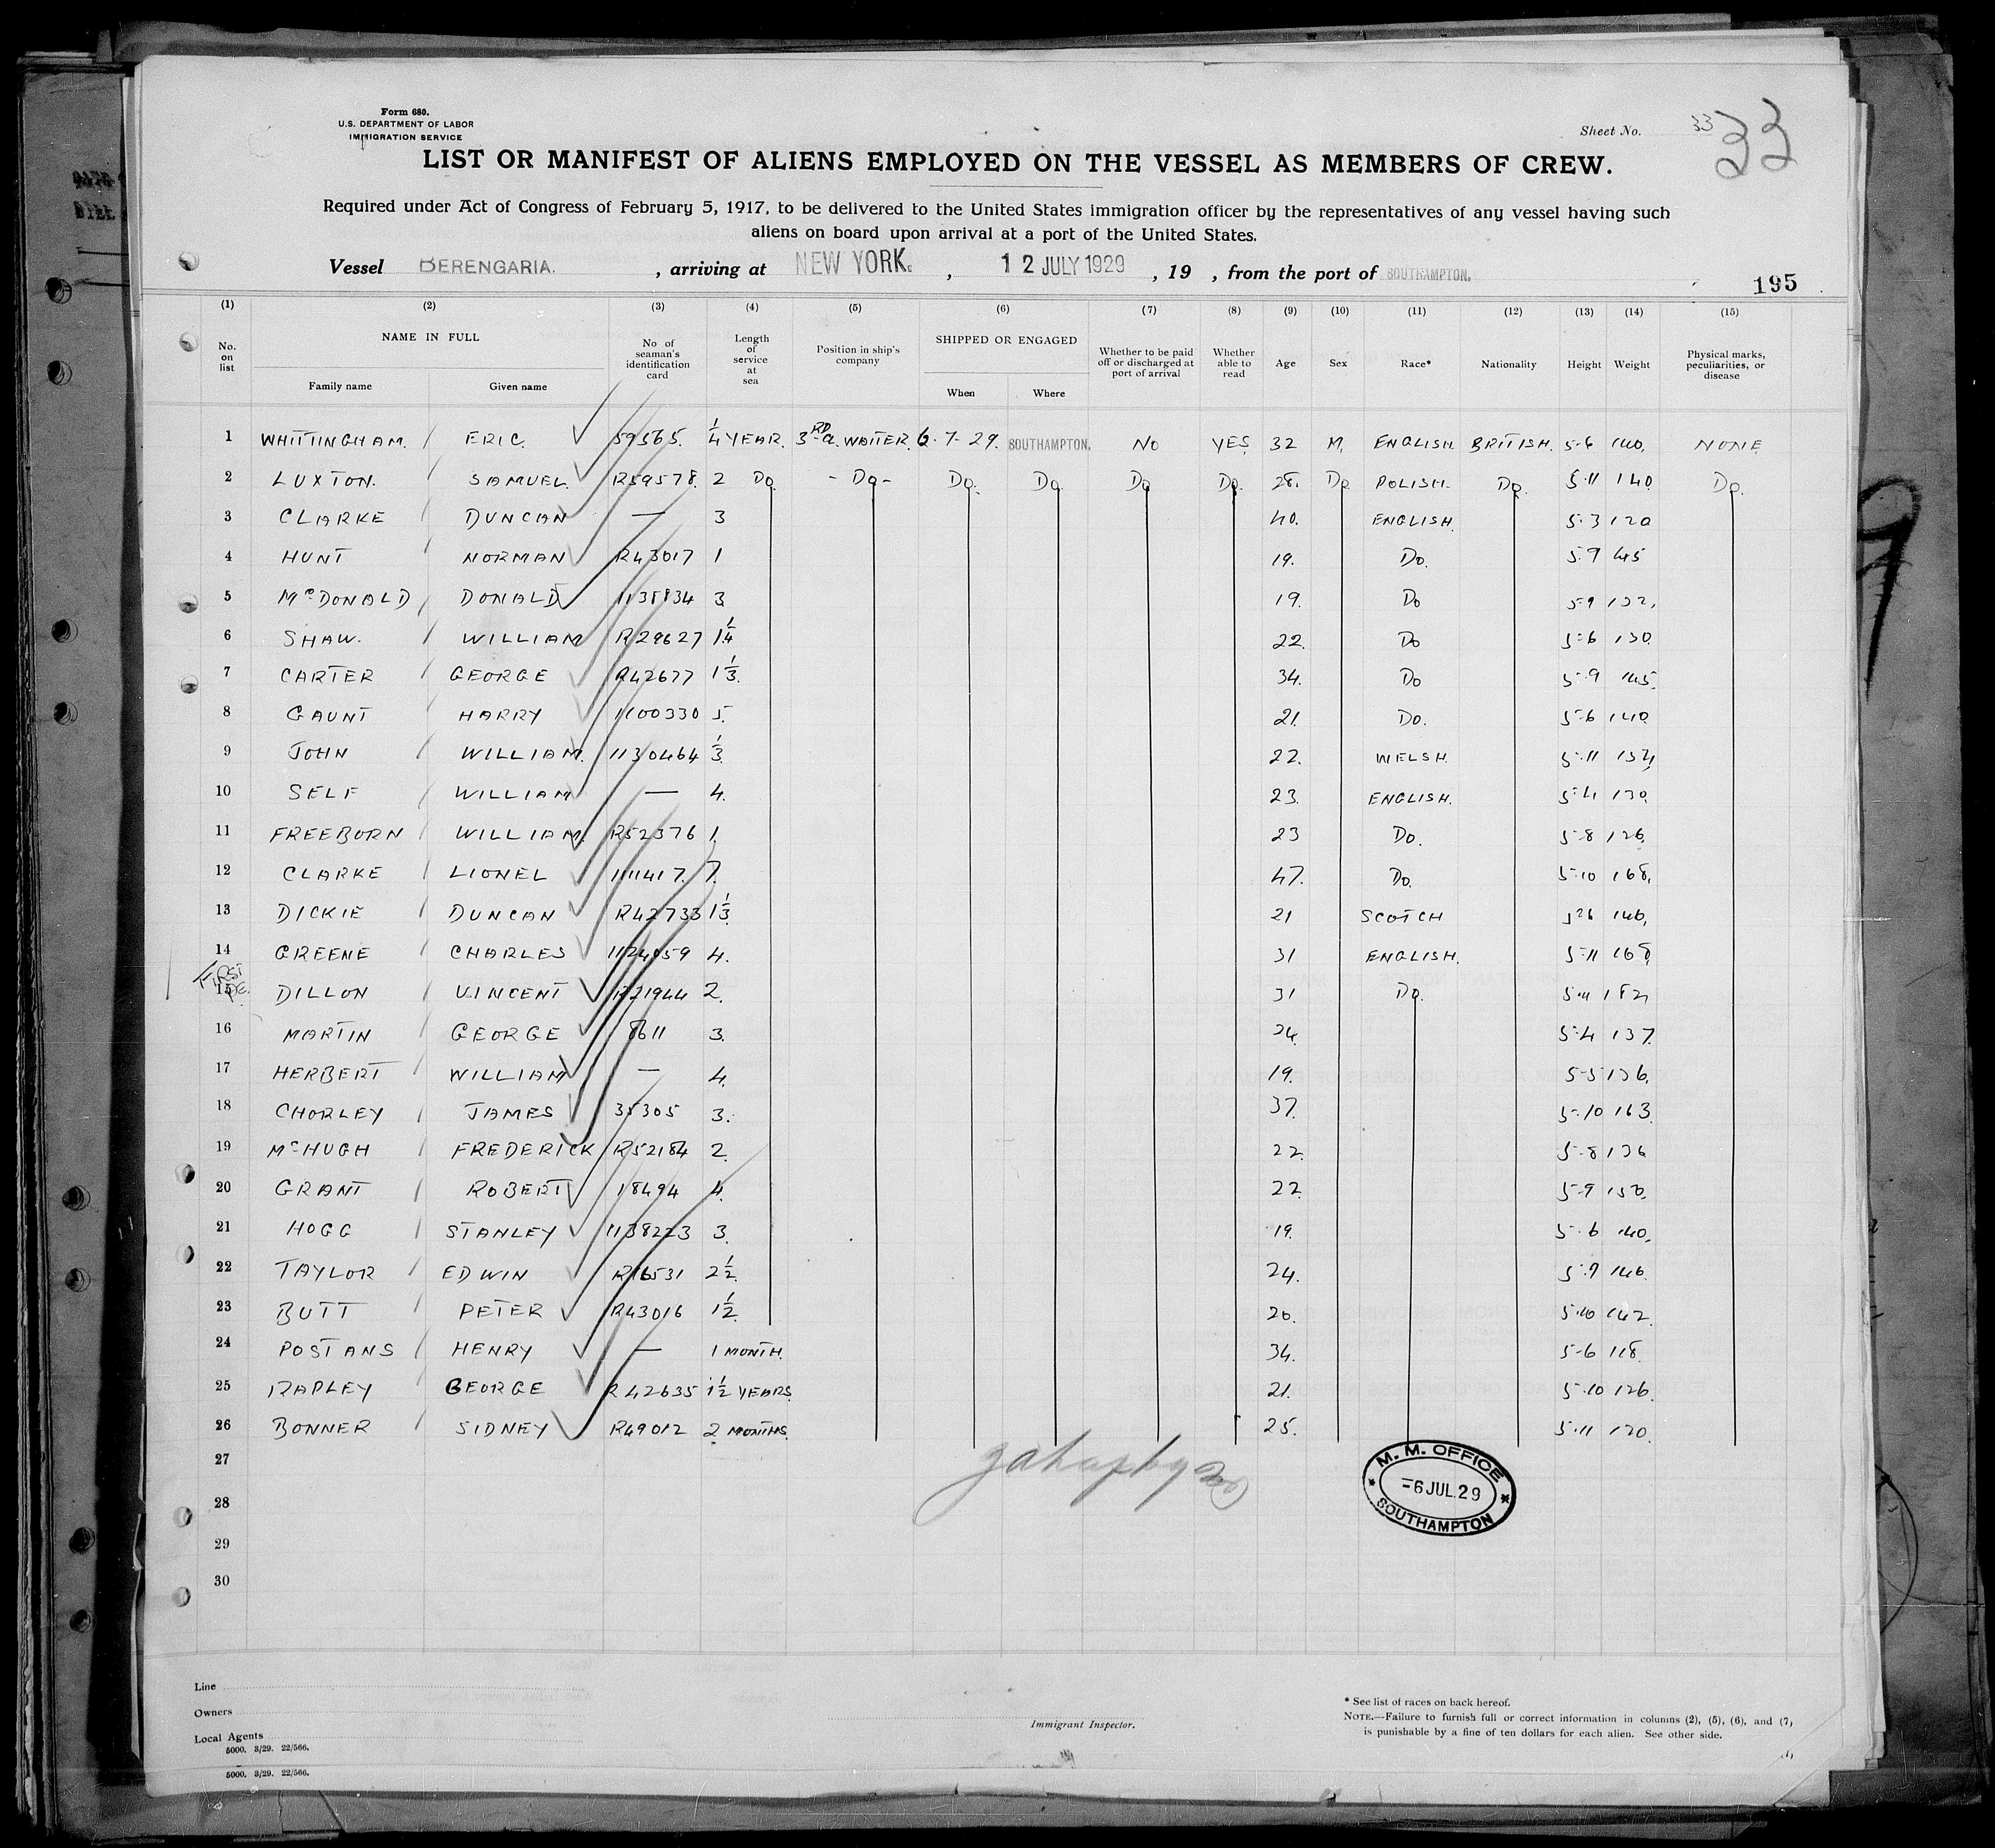 Form 680.
U.S. DEPARTMENT OF LABOR
IMMIGRATION SERVICE
Sheet No. 33 33
LIST OR MANIFEST OF ALIENS EMPLOYED ON THE VESSEL AS MEMBERS OF CREW.
Required under Act of Congress of February 5, 1917, to be delivered to the United States immigration officer by the representatives of any vessel having such
aliens on board upon arrival at a port of the United States.
Vessel BERENGARIA. , arriving at NEW YORK. , 12 JULY 1929 , 19 , from the port of SOUTHAMPTON.
195
(1) (2) (3) (4) (5) (6) (7) (8) (9) (10) (11) (12) (13) (14) (15)
No. on list NAME IN FULL Family name Given name No of seaman's identification card Length of service at sea Position in ship's company SHIPPED OR ENGAGED When Where Whether to be paid off or discharged at port of arrival Whether able to read Age Sex Race* Nationality Height Weight Physical marks, peculiarities, or disease
1 WHITTINGHAM. ERIC. 59565. 1/4 YEAR. 3RD Cl. WAITER. 6.7.29. SOUTHAMPTON. NO YES 32 M. ENGLISH. BRITISH. 5-6 140. NONE
2 LUXTON. SAMUEL. R59578. 2 Do - Do - Do. Do. Do Do. 28. Do POLISH. Do. 5-11 140. Do.
3 CLARKE DUNCAN — 3 40. ENGLISH. 5-3 120
4 HUNT NORMAN R43017 1 19. Do. 5-9 145
5 McDONALD DONALD 3 19. Do 5-9 132.
6 SHAW. WILLIAM R29627 1 1/4 22. Do 5-6 130.
7 CARTER GEORGE R42677 1 1/3. 34. Do 5-9 145.
8 GAUNT HARRY 1100330 5. 21. Do. 5-6 140.
9 JOHN WILLIAM. 1130464 1/3 22. WELSH. 5-11 154
10 SELF WILLIAM — 4. 23. ENGLISH. 5-4 130.
11 FREEBORN WILLIAM. R52376 1. 23 Do. 5-8 126.
12 CLARKE LIONEL 111417. 7. 47. Do. 5-10 168.
13 DICKIE DUNCAN R42733 1 1/3 21 SCOTCH 5-6 146.
14 GREENE CHARLES 4. 31 ENGLISH. 5-11 168
15 DILLON VINCENT R21944 2. 31 Do. 5-11 182
16 MARTIN GEORGE 8611 3. 24. 5-4 137.
17 HERBERT WILLIAM — 4. 19. 5-5 136.
18 CHORLEY JAMES 35305 3. 37. 5-10 163.
19 McHUGH FREDERICK R52184 2. 22. 5-8 136
20 GRANT ROBERT 18494 4. 22. 5-9 150.
21 HOGG STANLEY 1138223 3. 19. 5-6 140.
22 TAYLOR EDWIN R16531 2 1/2. 24. 5-9 146.
23 BUTT PETER R43016 1 1/2. 20. 5-10 142.
24 POSTANS HENRY — 1 MONTH. 34. 5-6 118.
25 RAPLEY GEORGE R42635 1 1/2 YEARS. 21. 5-10 126.
26 BONNER SIDNEY R49012 2 MONTHS. 25. 5-11 120.
27
28
29
30
M. M. OFFICE
-6 JUL. 29
SOUTHAMPTON
Line
Owners
Local Agents
5000. 3/29. 22/566.
5000. 3/29. 22/566.
Immigrant Inspector.
* See list of races on back hereof.
NOTE.—Failure to furnish full or correct information in columns (2), (5), (6), and (7)
is punishable by a fine of ten dollars for each alien. See other side.